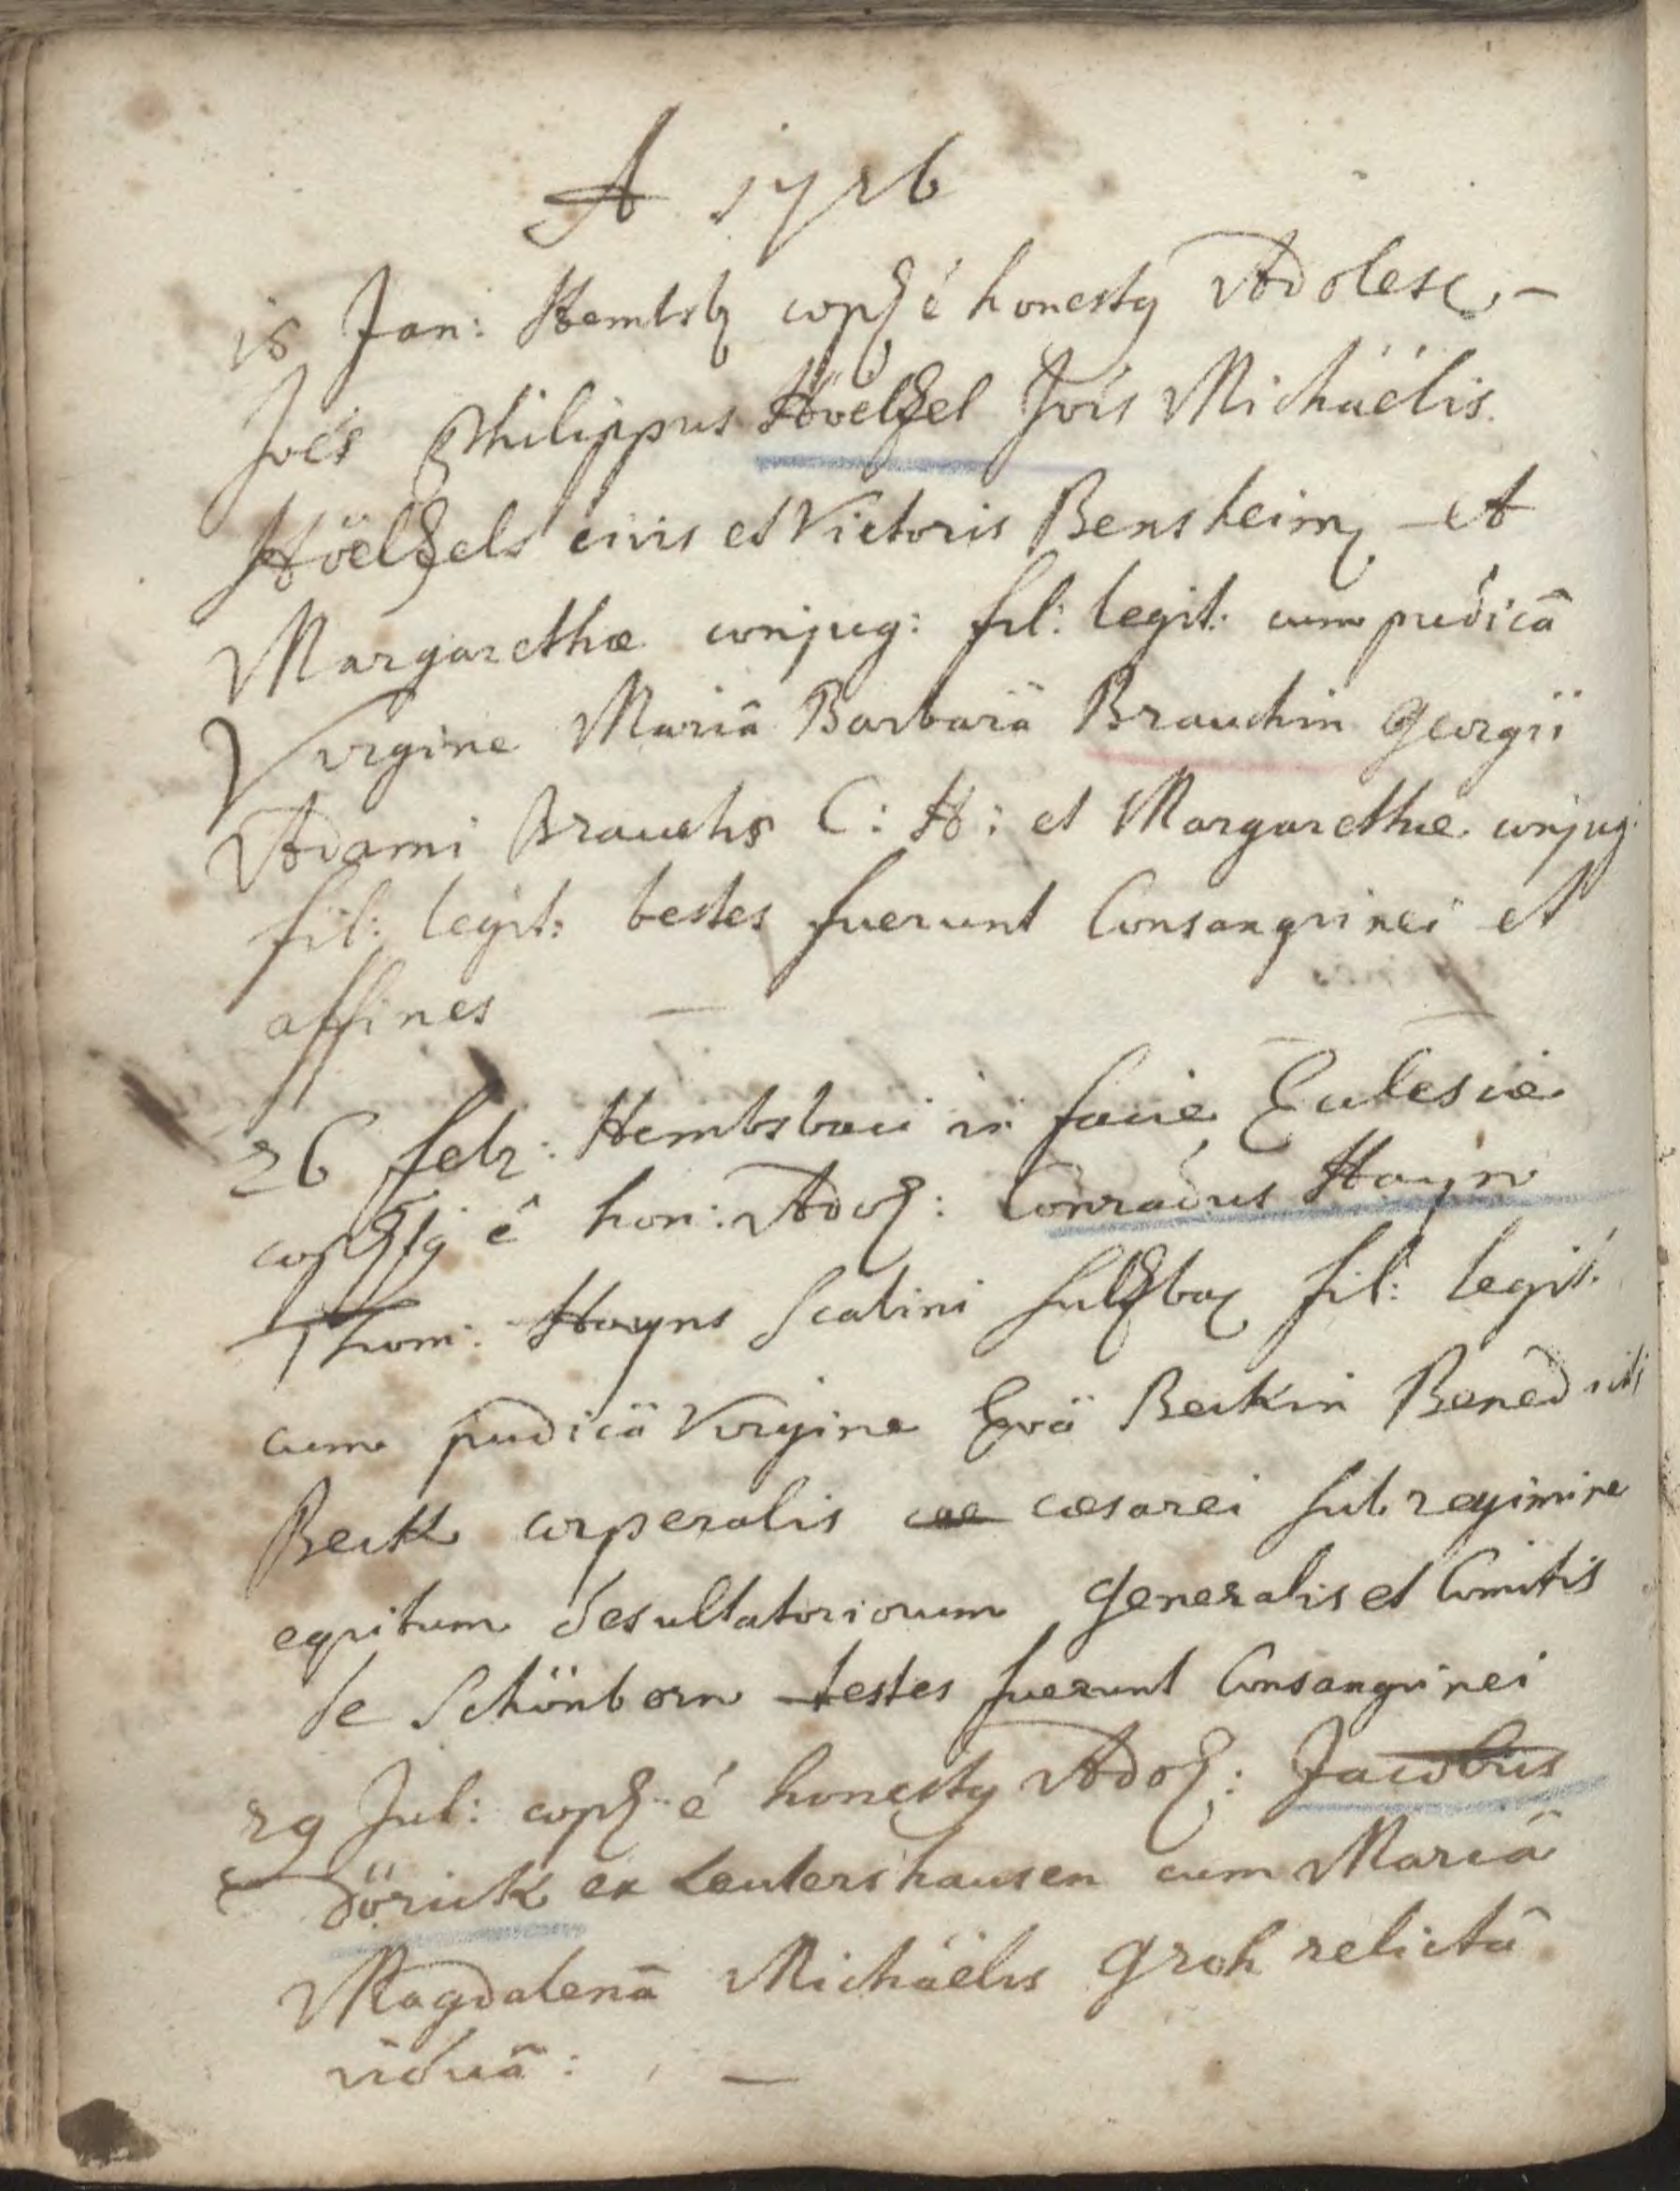 A 1726
15 Jan: Hembsb copł é honesty Adolesc –
Joés Philippus Höeltzel Jois Michäelis
Höeltzels civis et Victoris Bensheim et
Margarethæ conjug: fil: legit: cum pudicâ
Virgine Mariâ Barbarâ Brauchin Georgii
Adami Brauchs C: H: et Margarethæ conjug:
fil: legit: testes fuerunt Consanguinei et
affines —
26 feb: Hembsbaci in facie Ecclesiæ
é hon: Adol: Conradus Hayn
Thom: Hayns Scabini Sultzbac fil: legit:
cum pudicâ Virgine Evâ Beckin Benedicti
Beck corperalis cae cæsarei sub regimine
equitum desultatoriorum Generalis et Comitis
de Schönborn testes fuerunt Consanguinei
29 Jul: copł é honesty Adol: Jacobus
Dörick ex Leutershausen cum Mariâ
Magdalenâ Michäelis Groh relictâ
viduâ: —